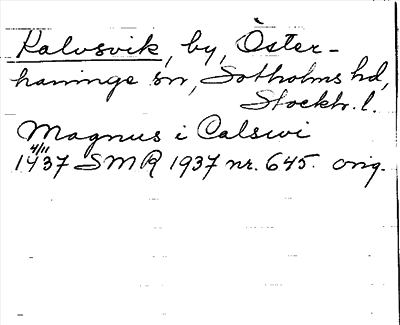 Kalvsvik, by, Öster-
haninge sn, Sotholms hd,
Stockh. l.
Magnus i Calswi
4/11
1437 SMR 1937 nr. 645. orig.